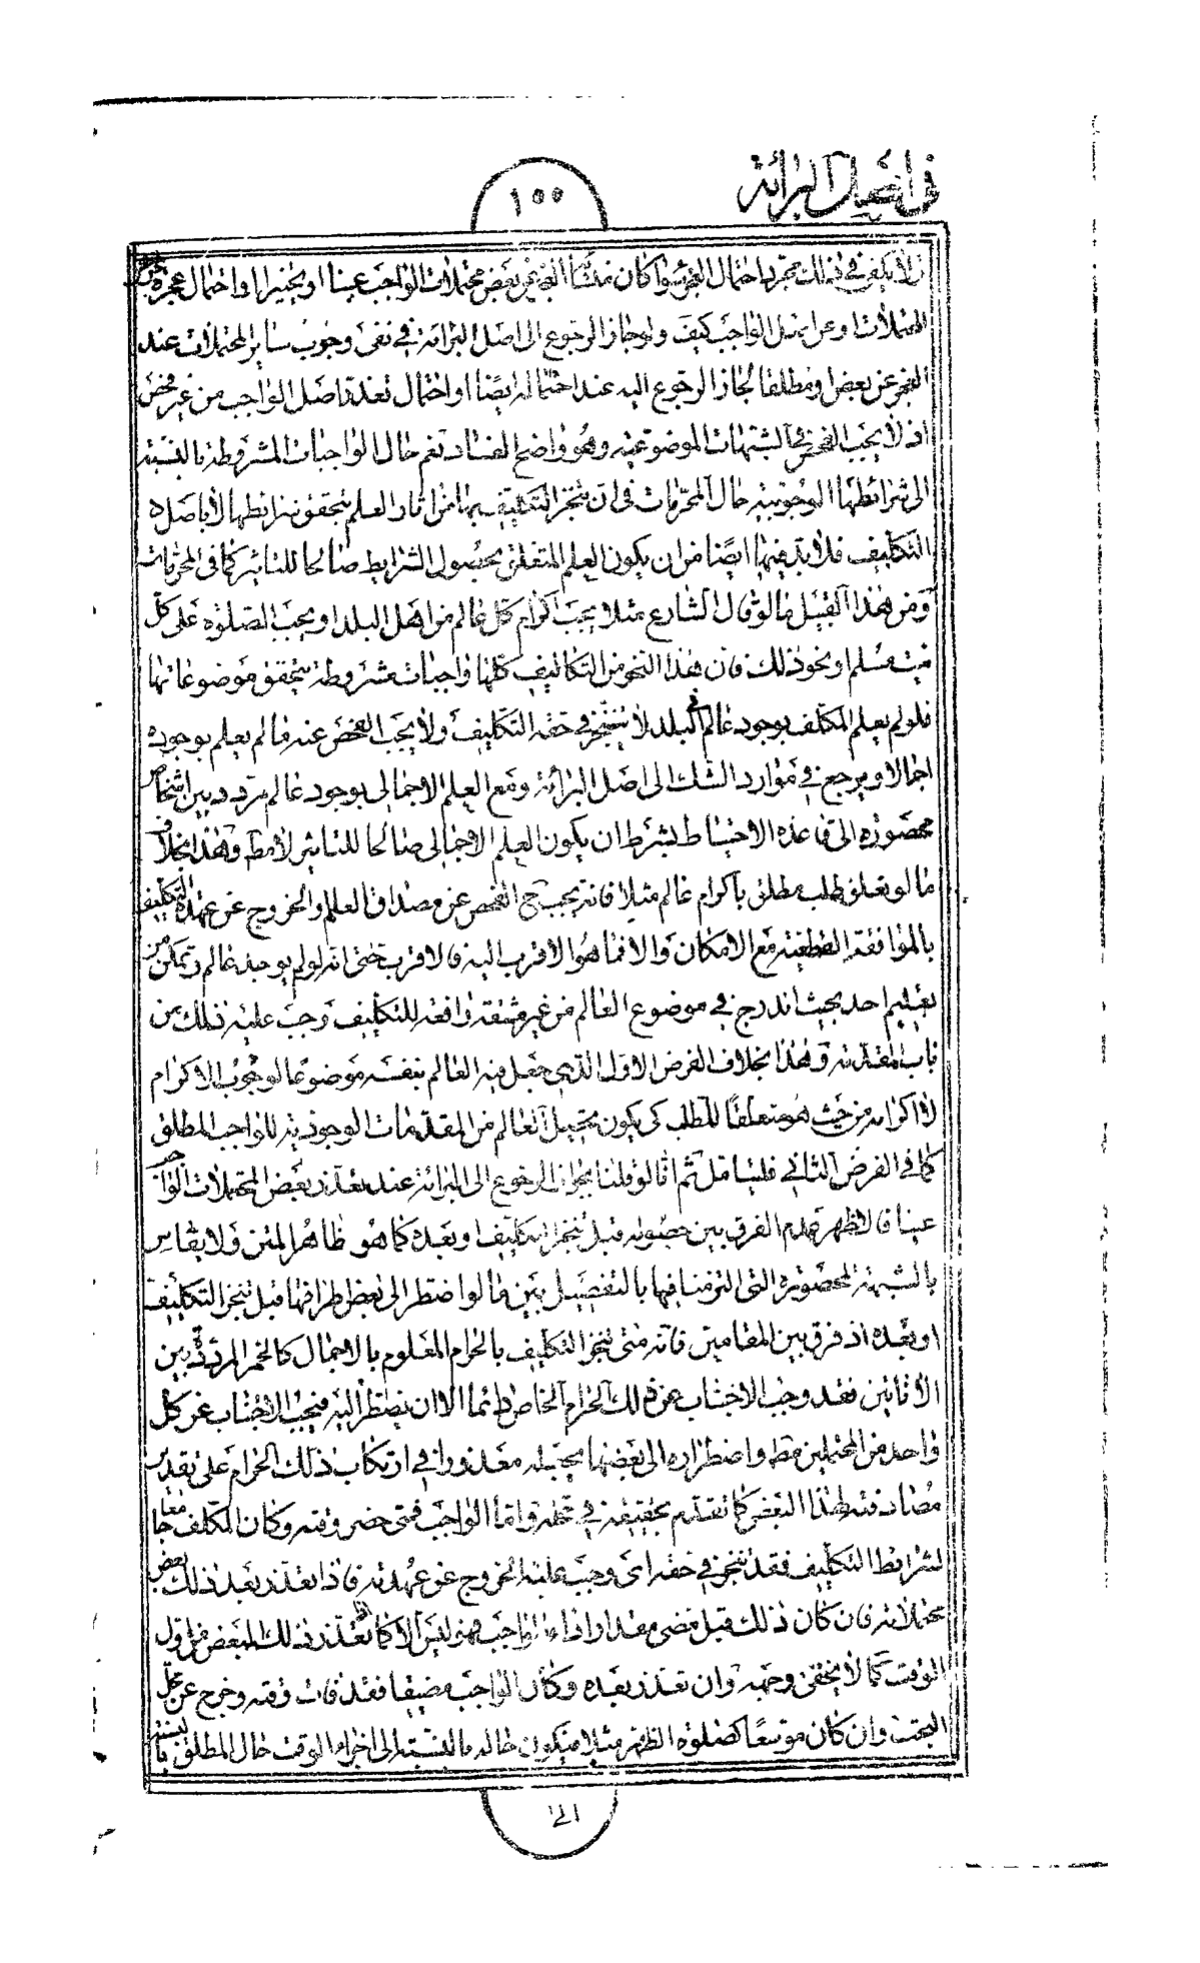 في اصل البرائة
١٥٥
ولا يكفي في ذلك مجرد احتمال العجز سواء كان منشأ العجز عن بعض محتملات الواجب عينا او تخييرا او احتمال عجزه عن
المحتملات او عن امتثال الواجب كيف ولو جاز الرجوع الى اصل البرائة في نفى وجوب سائر المحتملات عند
العجز عن بعضها ومطلقا لجاز الرجوع اليه عند احتماله ايضا او احتمال تعذر اصل الواجب من غير فحص
اذ لا يجب الفحص في الشبهات الموضوعية وهو واضح الفساد نعم حال الواجبات المشروطة بالنسبة
الى شرائطها الوجوبية حال المحرمات في ان تنجز التكليف بها من اثار العلم بتحقق شرائطها لا باصل
التكليف فلا بد فيها ايضا من ان يكون العلم المتعلق بحصول الشرايط صالحا للتاثير كما في المحرمات
ومن هذا القبيل ما لو قال الشارع مثلا يجب اكرام كل عالم من اهل البلد او يجب الصلوة على كل
ميت مسلم او نحو ذلك فان هذا النحو من التكاليف كلها واجبات مشروطة بتحقق موضوعاتها
فلو لم يعلم المكلف بوجود عالم في البلد لا يتنجز في حقه التكليف ولا يجب الفحص عنه ما لم يعلم بوجوده
اجمالا ويرجع في موارد الشك الى اصل البرائة ومع العلم الاجمالى بوجود عالم مردد بين اشخاص
محصورة الى قاعدة الاحتياط بشرط ان يكون العلم الاجمالى صالحا للتاثير لا مطلقا وهذا بخلاف
ما لو تعلق طلب مطلق باكرام عالم مثلا فانه يجب ح الفحص عن مصداق العالم والخروج عن عهدة التكليف
بالموافقة القطعية مع الامكان والا فما هو الاقرب اليه فالاقرب حتى انه لو لم يوجد عالم وتمكن من
تعليم احد بحيث اندرج في موضوع العالم من غير مشقة رافعة للتكليف وجب عليه ذلك من
باب المقدمة وهذا بخلاف الفرض الاول الذي جعل فيه العالم بنفسه موضوعا لوجوب الاكرام
لا اكرامه من حيث هو متعلقا للطلب كى يكون تحصيل العالم من المقدمات الوجودية للواجب المطلق
كما في الفرض الثاني فليتامل ثم انا لو قلنا بجواز الرجوع الى البرائة عند تعذر بعض المحتملات الواجب
عينا فالاظهر عدم الفرق بين حصوله قبل تنجز التكليف او بعده كما هو ظاهر المتن ولا يقاس
بالشبهة المحصورة التى التزمنا فيها بالتفصيل بين ما لو اضطر الى بعض اطرافها قبل تنجز التكليف
او بعده اذ فرق بين المقامين فانه متى تنجز التكليف بالحرام المعلوم بالاجمال كالخمر المردد بين
الانائين فقد وجب الاجتناب عن ذلك الحرام الخاص دائما الا ان يضطر اليه فيجب الاجتناب عن كل
واحد من المحتملين مقدمة واضطراره الى بعضها يجعله معذورا في ارتكاب ذلك الحرام على تقدير
مصادفته لهذا البعض كما تقدم تحقيقه في محله واما الواجب فمتى حضر وقته وكان المكلف جامعا
لشرايط التكليف فقد تنجز في حقه اى وجب عليه الخروج عن عهدته فاذا تعذر بعد ذلك بعض
محتملاته فان كان ذلك قبل مضى مقدار اداء الواجب فهو ليس الا كما لو تعذر ذلك البعض من اول
الوقت كما لا يخفى وجهه وان تعذر بعده وكان الواجب مضيقا فقد فات وقته وخرج عن محل
البحث وان كان موسعا كصلوة الظهر مثلا فيكون حاله بالنسبة الى اجزاء الوقت حال المطلق بالنسبة
الى